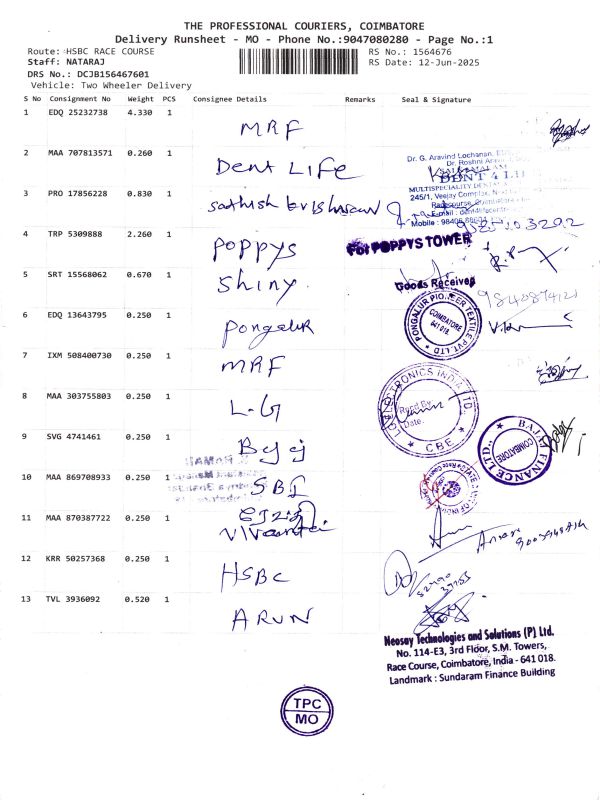 THE PROFESSIONAL COURIERS, COIMBATORE
Delivery Runsheet - MO - Phone No.:9047080280 - Page No.:1
Route: HSBC RACE COURSE
RS No.: 1564676
Staff: NATARAJ
RS Date: 12-Jun-2025
DRS No.: DCJB156467601
Vehicle: Two Wheeler Delivery
S No Consignment No Weight PCS Consignee Details Remarks Seal & Signature
1 EDQ 25232738 4.330 1 MRF
2 MAA 707813571 0.260 1 Dent LIFE
Dr. G. Aravind Lochanan,
Dr. Roshni
DENT 4 LI
MULTISPECIALITY DENTAL
245/1, Veejay Complex,
Racecourse, Coimbatore
3 PRO 17856228 0.830 1 Sathish krishnan
4 TRP 5309888 2.260 1 POPPYS
For POPPYS TOWER
5 SRT 15568062 0.670 1 Shiny
Goods Received
6 EDQ 13643795 0.250 1 Pongalur
PONGALUR PIONEER TEXTILE PVT. LTD
COIMBATORE
641 018.
7 IXM 508400730 0.250 1 MRF
8 MAA 303755803 0.250 1 L-G
LG ELECTRONICS INDIA LTD.
Recd By
Date.
CBE
9 SVG 4741461 0.250 1 Bajaj
BAJAJ FINANCE LTD.
COIMBATORE
10 MAA 869708933 0.250 1 SBI
STATE BANK OF INDIA
11 MAA 870387722 0.250 1 Vivantai
12 KRR 50257368 0.250 1 HSBC
13 TVL 3936092 0.520 1 ARUN
Neosay Technologies and Solutions (P) Ltd.
No. 114-E3, 3rd Floor, S.M. Towers,
Race Course, Coimbatore, India - 641 018.
Landmark : Sundaram Finance Building
TPC
MO